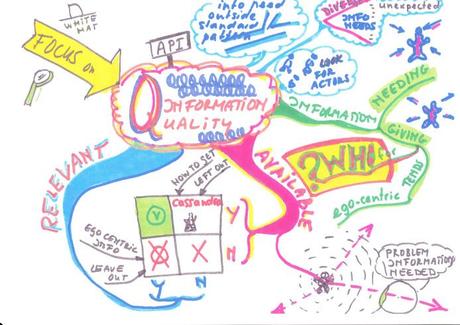 WHITE
HAT
FOCUS ON
API
info need
outside
standard
pattern
INFO NEEDS
unexpected
LOOK
FOR
ACTORS
INFORMATION
QUALITY
INFORMATION
NEEDING
GIVING
TENDS
ego-centric
WHO
for
?
RELEVANT
AVAILABLE
HOW TO SET
LEFT OUT
Cassandra
V
X
Y
N
Y
N
EGO CENTRIC
INFO
LEAVE
OUT
PROBLEM
INFORMATION
NEEDED